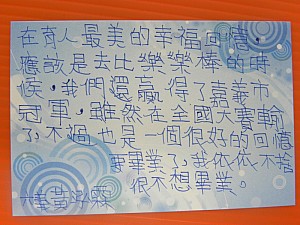 在育人最美的幸福回憶，
應該是去比樂樂棒的時
候，我們還贏得了嘉義市
冠軍，雖然在全國大賽輸
了，不過也是一個很好的回憶
要畢業了，我依依不捨
很不想畢業。
黃泓霖